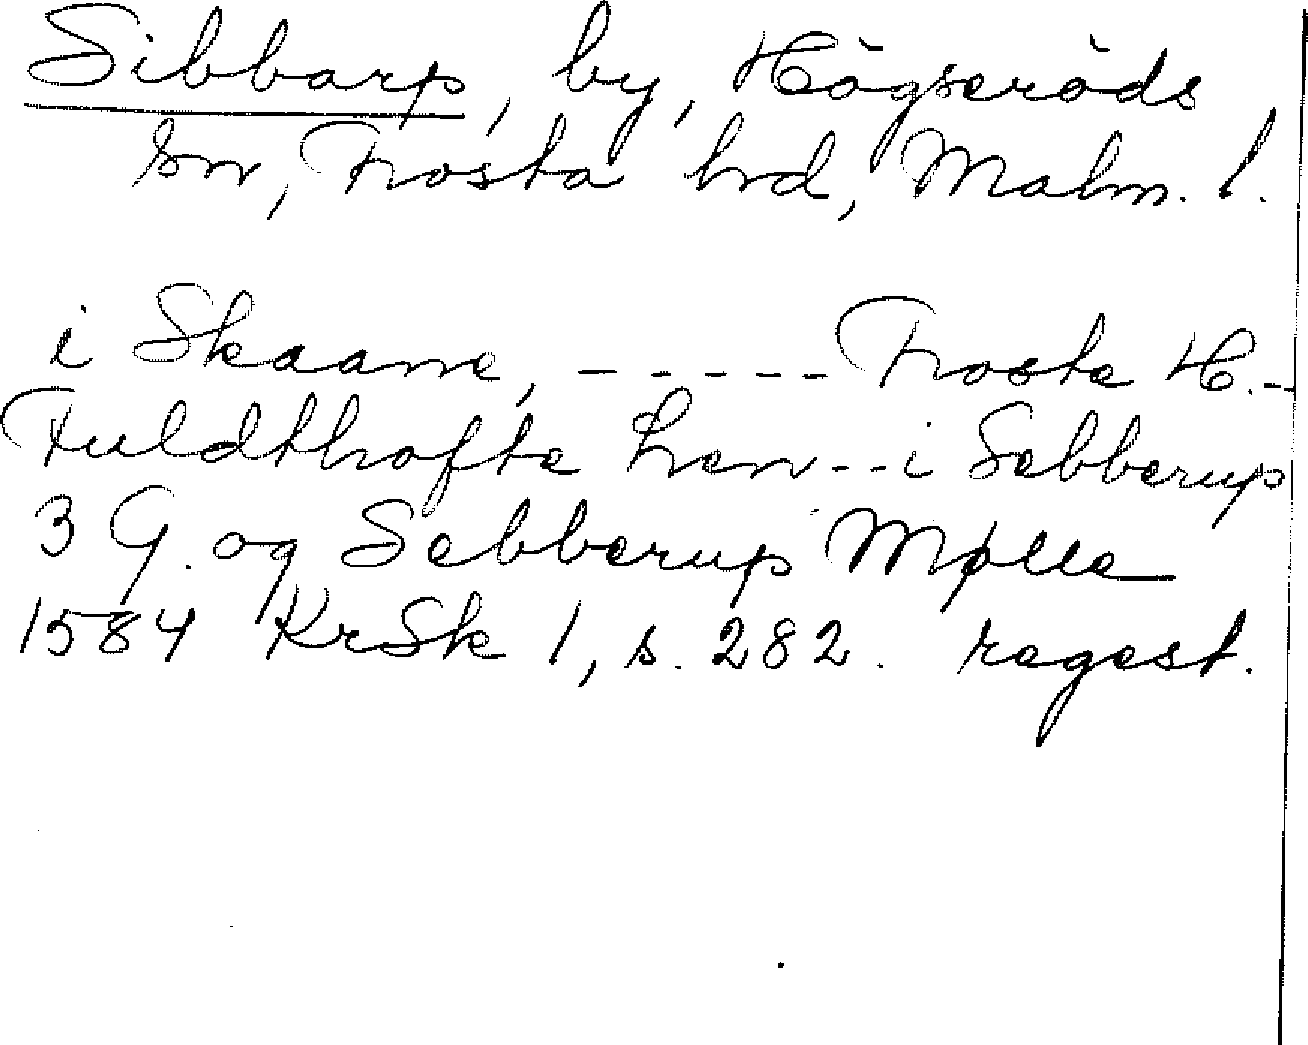 Sibbarp, by, Högseröds
sn, Frosta hrd, Malm. l.
i Skaane, ----- Froste H.--
Fuldthofte Len -- i Sebberup
3 G. og Sebberup Mølle
1584 KrSk 1, s. 282. regest.